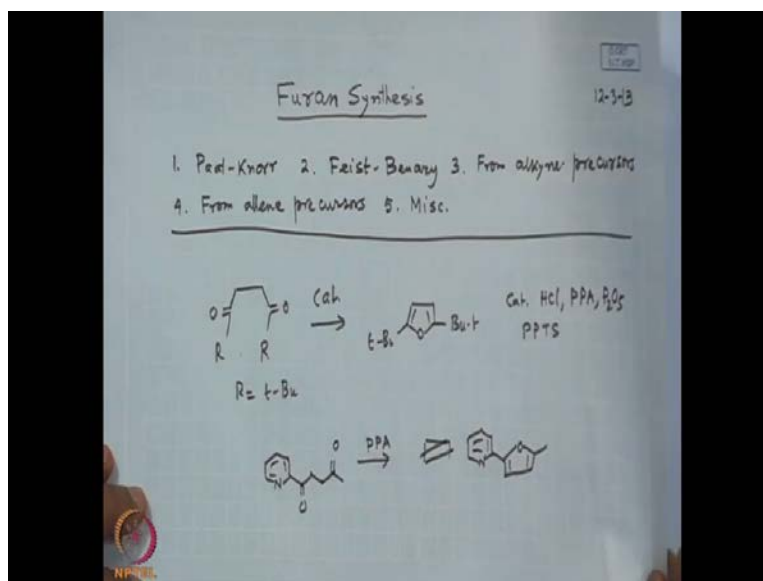 Furan Synthesis
12-3-13
1. Paal-Knorr 2. Feist-Benary 3. From alkyne precursors
4. From allene precursors 5. Misc.
O O Cat. t-Bu O Bu-t Cat. HCl, PPA, P2O5
R R PPTS
R = t-Bu
N O O PPA N O
NPTEL